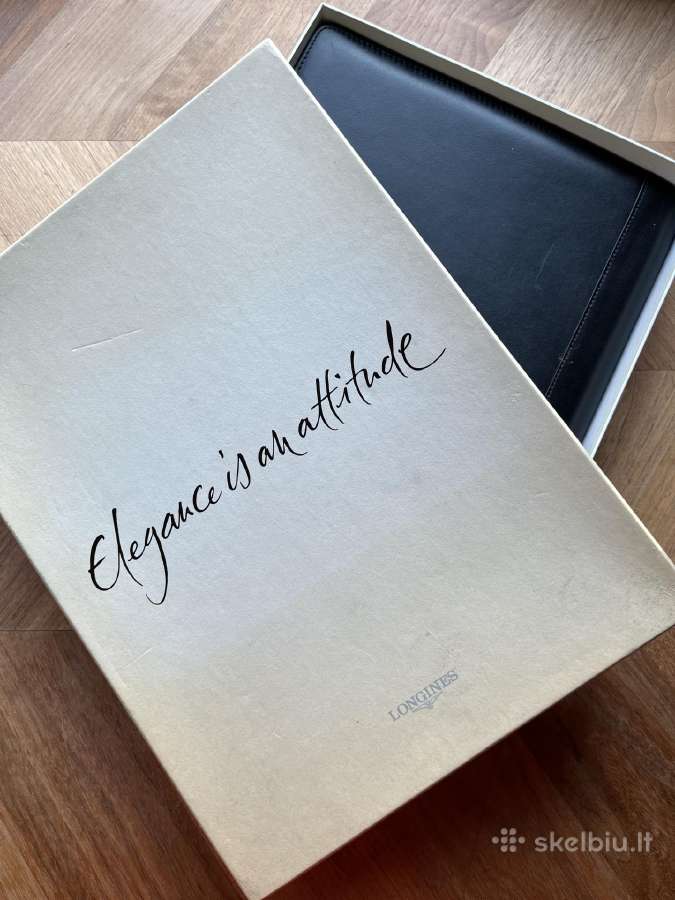 Elegance is an attitude
LONGINES
skelbiu.lt